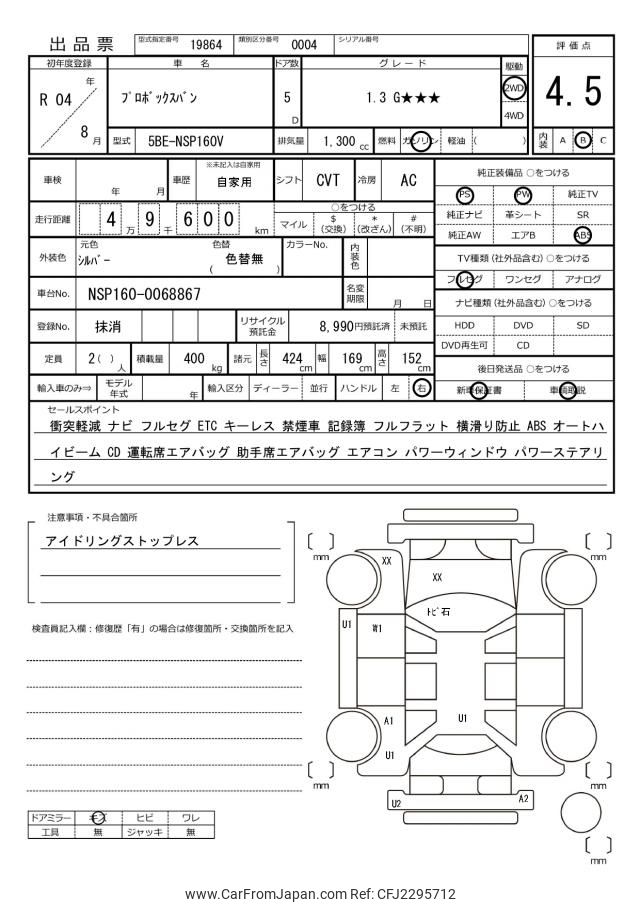 出品票
型式指定番号 19864 類別区分番号 0004 シリアル番号
評価点
4.5
内装 A B C
初年度登録 車名 ドア数 グレード 駆動
R 04 年 8 月
プロボックスバン
5 D
1.3 G★★★
2WD
4WD
型式 5BE-NSP160V 排気量 1,300 cc 燃料 ガソリン 軽油 ( )
車検 年 月 車歴 ※未記入は自家用 自家用 シフト CVT 冷房 AC
走行距離 4 万 9 千 6 0 0 km
○をつける
マイル $ (交換) * (改ざん) # (不明)
外装色 元色 シルバー 色替 ( 色替無 ) カラーNo. 内装色
車台No. NSP160-0068867 名変期限 月 日
登録No. 抹消 リサイクル預託金 8,990円預託済 未預託
定員 2( ) 人 積載量 400 kg 諸元 長さ 424 cm 幅 169 cm 高さ 152 cm
輸入車のみ⇒ モデル年式 年 輸入区分 ディーラー 並行 ハンドル 左 右
純正装備品 ○をつける
PS PW 純正TV
純正ナビ 革シート SR
純正AW エアB ABS
TV種類 (社外品含む) ○をつける
フルセグ ワンセグ アナログ
ナビ種類 (社外品含む) ○をつける
HDD DVD SD
DVD再生可 CD
後日発送品 ○をつける
新車保証書 車輌取説
セールスポイント
衝突軽減 ナビ フルセグ ETC キーレス 禁煙車 記録簿 フルフラット 横滑り防止 ABS オートハ
イビーム CD 運転席エアバッグ 助手席エアバッグ エアコン パワーウィンドウ パワーステアリ
ング
注意事項・不具合箇所
アイドリングストップレス
検査員記入欄：修復歴「有」の場合は修復箇所・交換箇所を記入
ドアミラー キズ ヒビ ワレ
工具 無 ジャッキ 無
mm
mm
XX
XX
トビ石
U1
W1
A1
U1
U1
mm
mm
U2
A2
mm
www.CarFromJapan.com Ref: CFJ2295712